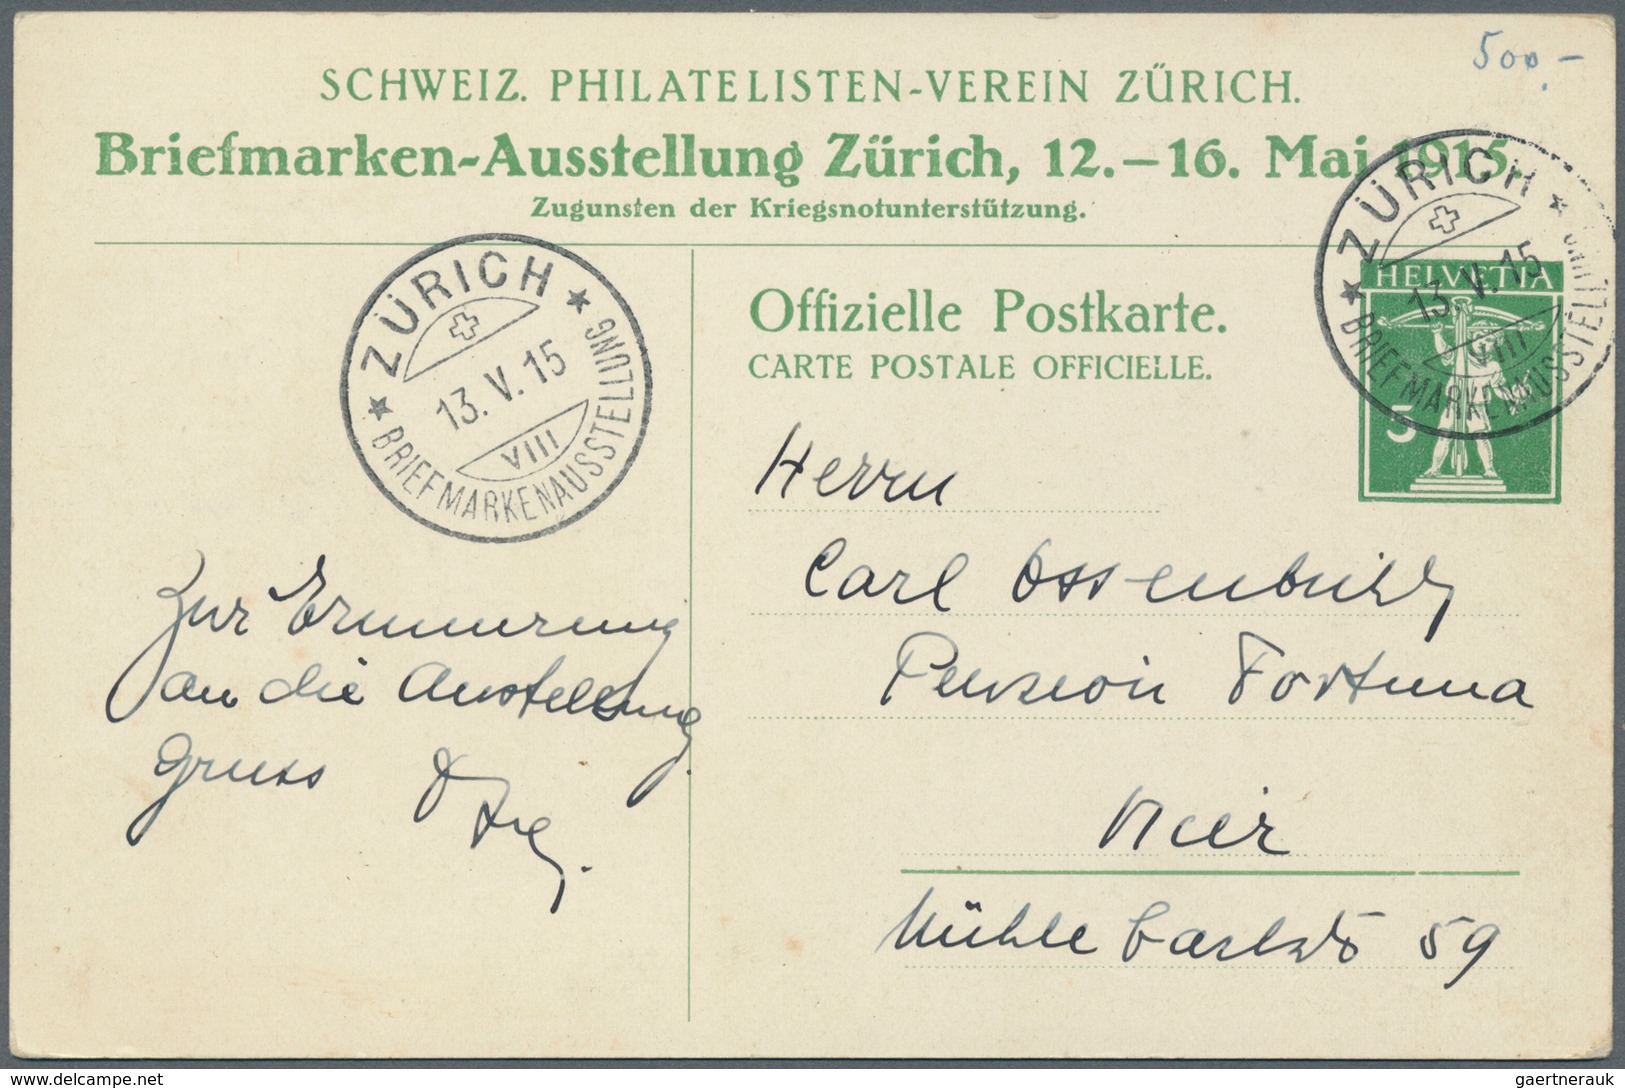 500.-
SCHWEIZ. PHILATELISTEN-VEREIN ZÜRICH.
Briefmarken-Ausstellung Zürich, 12.–16. Mai 1915.
Zugunsten der Kriegsnotunterstützung.
ZÜRICH
13. V. 15
VIII
★ BRIEFMARKENAUSSTELLUNG ★
ZÜRICH
13. V. 15
VIII
★ BRIEFMARKENAUSSTELLUNG ★
HELVETIA
5
Offizielle Postkarte.
CARTE POSTALE OFFICIELLE.
Herrn
Carl
Pension Fortuna
Mühlebachstr 59
Zur Erinnerung
an die Ausstellung
Gruss
Delcampe.net
gaertnerauk